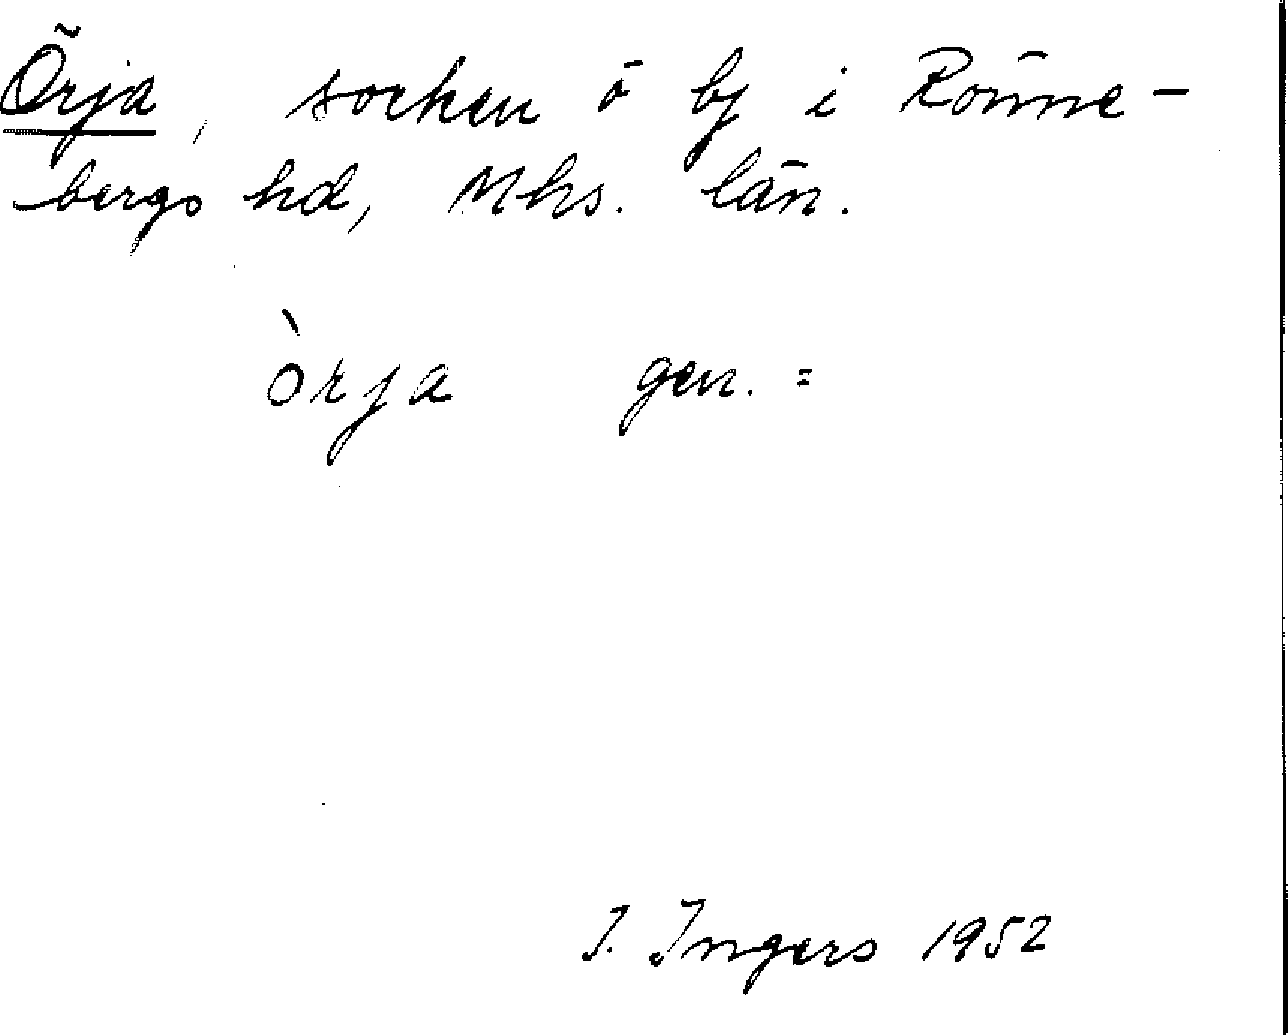 Örja, socken ö by i Rönne-
bergs hd, Mhs. län.
òrja gen. =
I. Ingers 1952